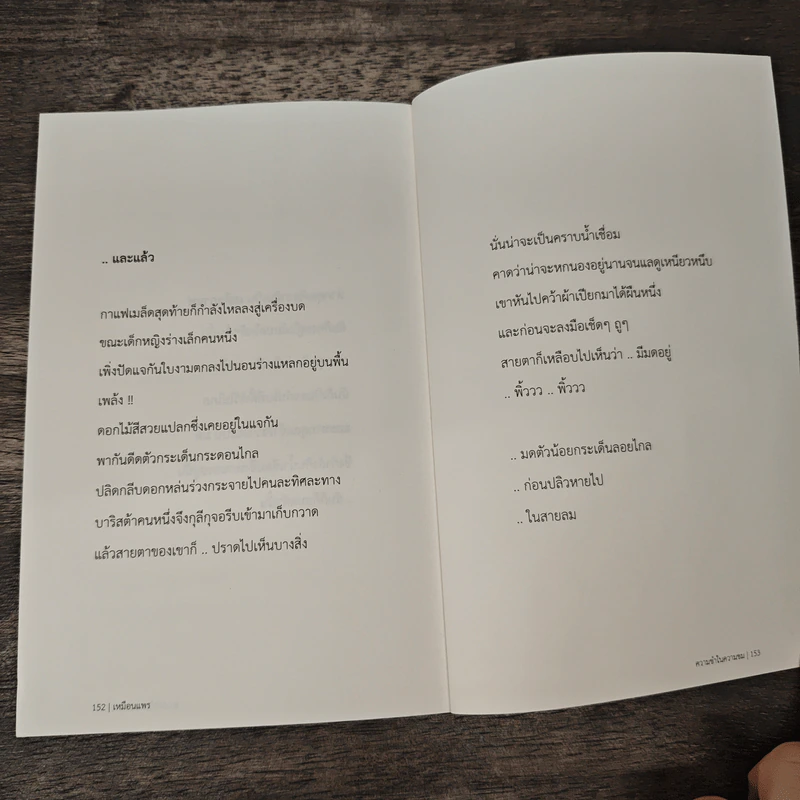 .. และแล้ว
กาแฟเมล็ดสุดท้ายก็กำลังไหลลงสู่เครื่องบด
ขณะเด็กหญิงร่างเล็กคนหนึ่ง
เพิ่งปัดแจกันใบงามตกลงไปนอนร่างแหลกอยู่บนพื้น
เพล้ง !!
ดอกไม้สีสวยแปลกซึ่งเคยอยู่ในแจกัน
พากันดีดตัวกระเด็นกระดอนไกล
ปลิดกลีบดอกหล่นร่วงกระจายไปคนละทิศละทาง
บาริสต้าคนหนึ่งจึงกุลีกุจอรีบเข้ามาเก็บกวาด
แล้วสายตาของเขาก็ .. ปราดไปเห็นบางสิ่ง
152 | เหมือนแพร
นั่นน่าจะเป็นคราบน้ำเชื่อม
คาดว่าน่าจะหกนองอยู่นานจนแลดูเหนียวหนึบ
เขาหันไปคว้าผ้าเปียกมาได้ผืนหนึ่ง
และก่อนจะลงมือเช็ดๆ ถูๆ
สายตาก็เหลือบไปเห็นว่า .. มีมดอยู่
.. พิ้ววว .. พิ้ววว
.. มดตัวน้อยกระเด็นลอยไกล
.. ก่อนปลิวหายไป
.. ในสายลม
ความขำในความขม | 153